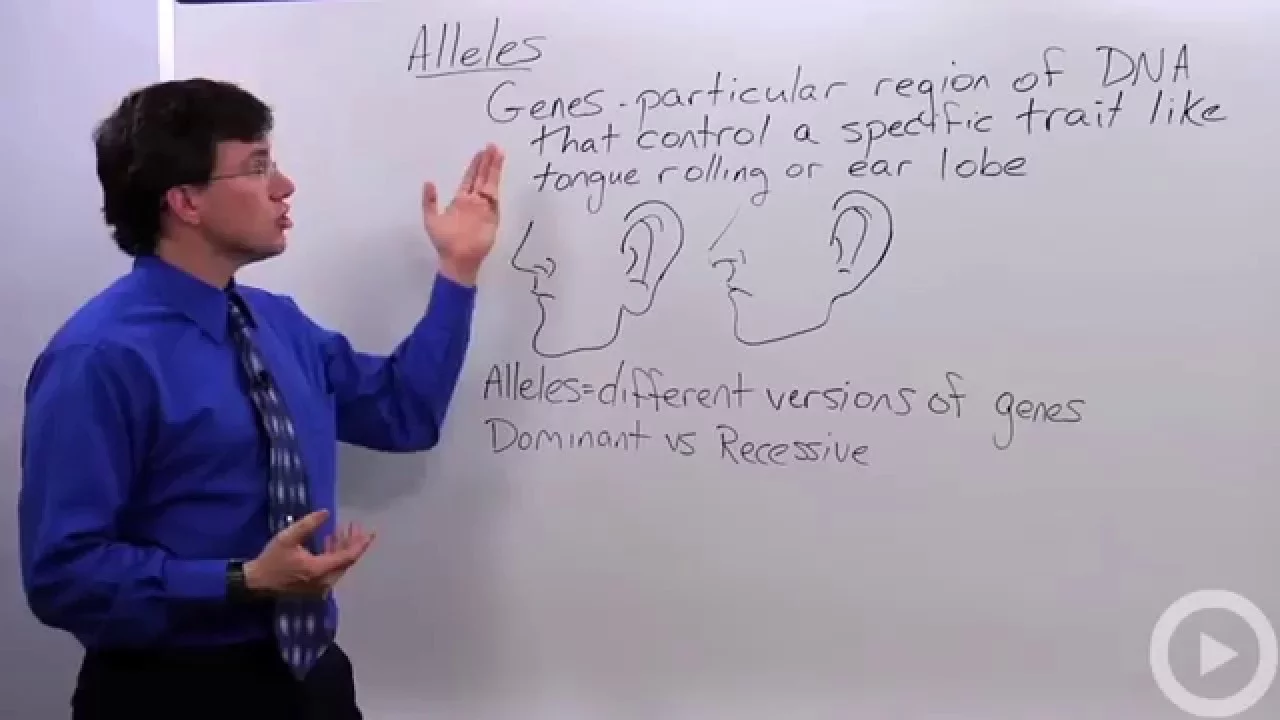 Alleles
Genes - particular region of DNA
that control a specific trait like
tongue rolling or ear lobe
Alleles=different versions of genes
Dominant vs Recessive